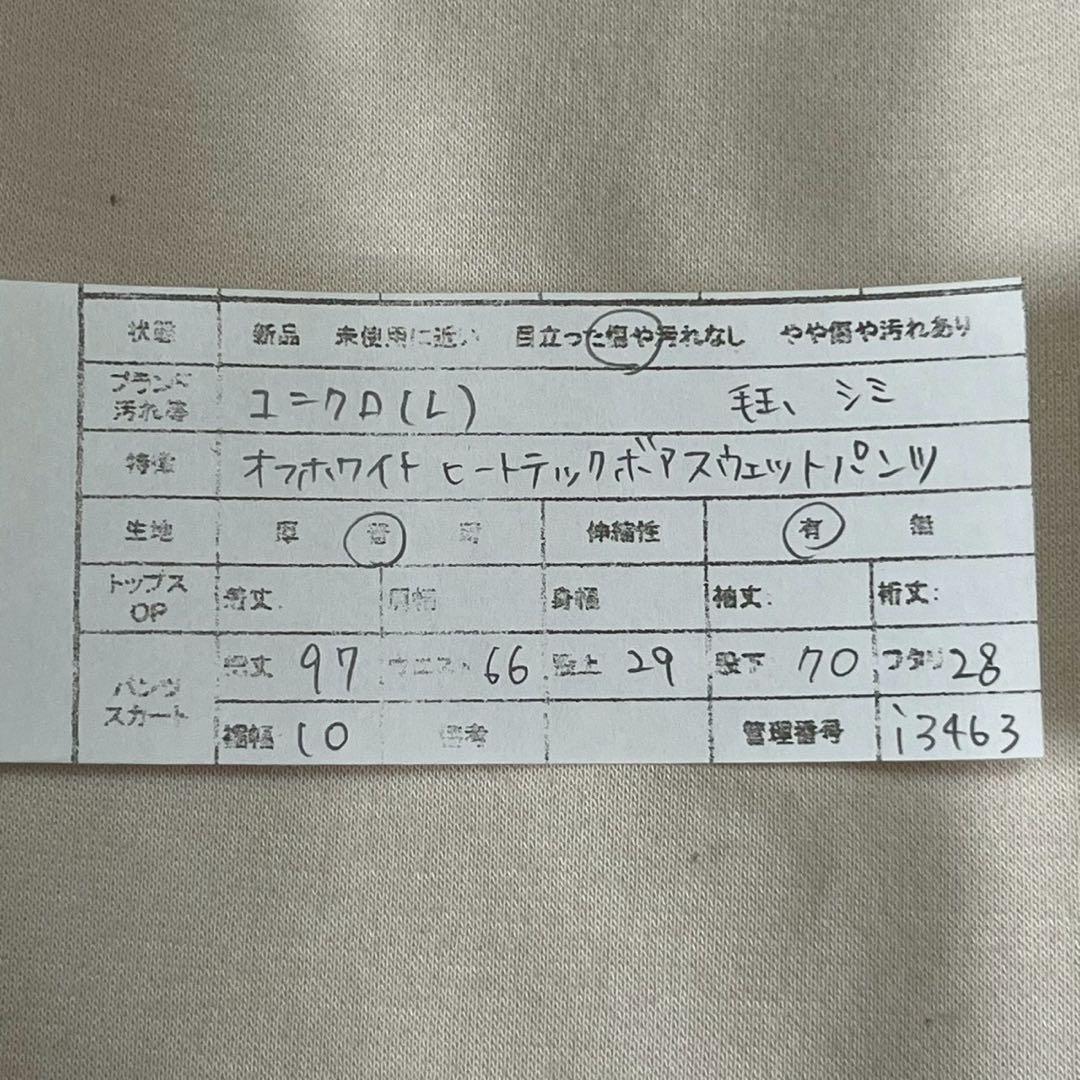 状態 新品 未使用に近い 目立った傷や汚れなし やや傷や汚れあり
ブランド 汚れ等 ユニクロ(L) 毛玉、シミ
特徴 オフホワイト ヒートテックボアスウェットパンツ
生地 厚 普 薄 伸縮性 有 無
トップス OP 着丈: 肩幅 身幅 袖丈: 裄丈:
パンツ スカート 総丈 97 ウエスト 66 股上 29 股下 70 ワタリ 28
裾幅 10 備考 管理番号 i3463